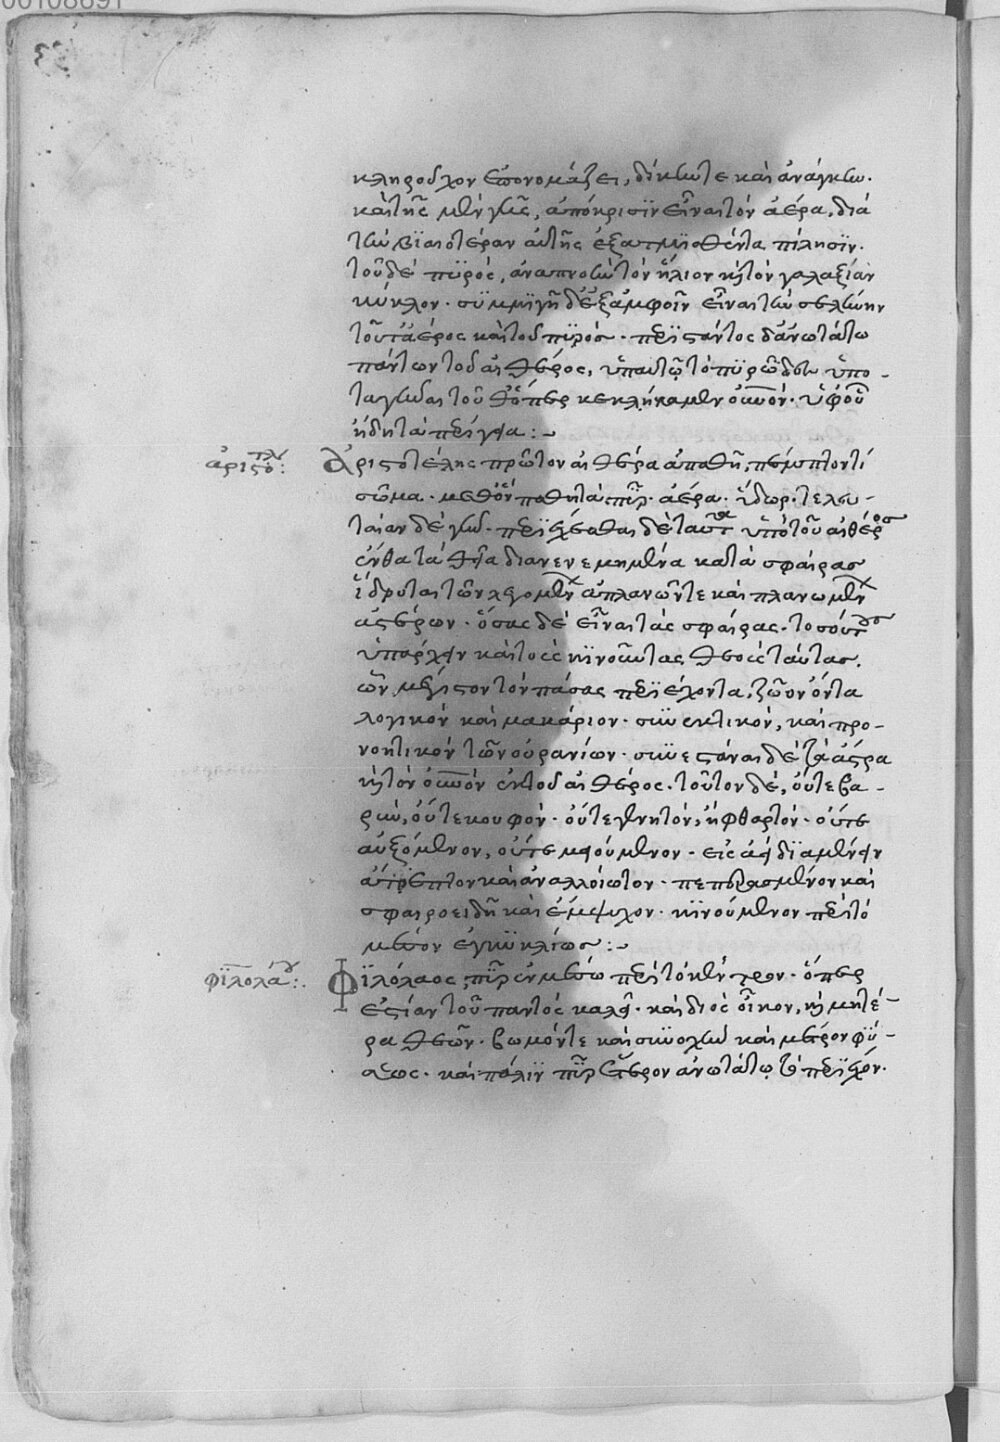 00108691
κληροῦχον ἐπονομάζει, δίκην τε καὶ ἀνάγκην.
καὶ τῆς μὲν γῆς, ἀπόκρισϊν εἶναι τὸν ἀέρα, διὰ
τὴν βϊαιοτέραν αὐτῆς ἐξατμϊσθέντα πίλησϊν.
τοῦ δὲ πϋρός, ἀναπνοὴν τὸν ἥλιον κὴ τὸν γαλαξίαν
κύκλον. συμμϊγῆ δ' ἐξ ἀμφοῖν εἶναι τὴν σελήνην
τοῦ τ' ἀέρος καὶ τοῦ πϋρόσ. περϊστάντος δ' ἀνωτάτω
πάντων τοῦ αἰθέρος, ὑπ' αὐτῷ τὸ πϋρῶδες ὑπο-
ταγῆναι τοῦθ' ὅπερ κεκλήκαμεν οὐνον. ὑφ' οὗ
ἤδη τὰ περίγεια :~
ἀριστοτλ: Ἀριστοτέλης πρῶτον αἰθέρα ἀπαθῆ, πέμπτον τί
σῶμα. μεθ' ὃν παθητὰ πῦρ. ἀέρα. ὕδωρ. τελευ-
ταίαν δὲ γῆν. περϊέχεσθαι δὲ ταῦτα ὑπὸ τοῦ αἰθέρος
ἔνθα τὰ θεῖα διανενεμημένα κατὰ σφαίρασ
ἵδρυται τῶν λεγομένων ἀπλανῶν τε καὶ πλανωμένων
ἀστέρων. ὅσας δὲ εἶναι τὰς σφαίρας. τοσούτους
ὑπάρχειν καὶ τοὺς κϊνοῦντας θεοὺς ταύτασ.
ὧν μέγιστον τὸν πάσας περϊέχοντα, ζῶον ὄντα
λογικὸν καὶ μακάριον. συνεκτικὸν, καὶ προ-
νοητικὸν τῶν οὐρανίων. συνεστάναι δὲ τὰ ἄστρα
κὴ τὸν οὐνὸν ἐκ τοῦ αἰθέρος. τοῦτον δὲ, οὔτε βα-
ρὺν, οὔτε κουφον. οὔτε γενητὸν, ἢ φθαρτόν. οὔτε
αὐξόμενον, οὔτε μειούμενον. εἰς ἀεὶ δϊαμένειν
ἄτρεπτον καὶ ἀναλλοίωτον. πεπερασμένον καὶ
σφαιροειδῆ καὶ ἔμψυχον. κϊνούμενον περὶ τὸ
μέσον ἐγκϋκλίωσ :~
φϊλολάου: Φϊλόλαος, πῦρ ἐν μέσω περὶ τὸ κέντρον. ὅπερ
ἑστίαν τοῦ παντὸς καλεῖ. καὶ διὸς οἶκον, κὴ μητέ-
ρα θεῶν. βωμόν τε καὶ συνοχὴν καὶ μέτρον φϋ-
σεως. καὶ πάλϊν πῦρ ἕτερον ἀνωτάτω, τὸ περϊέχον.